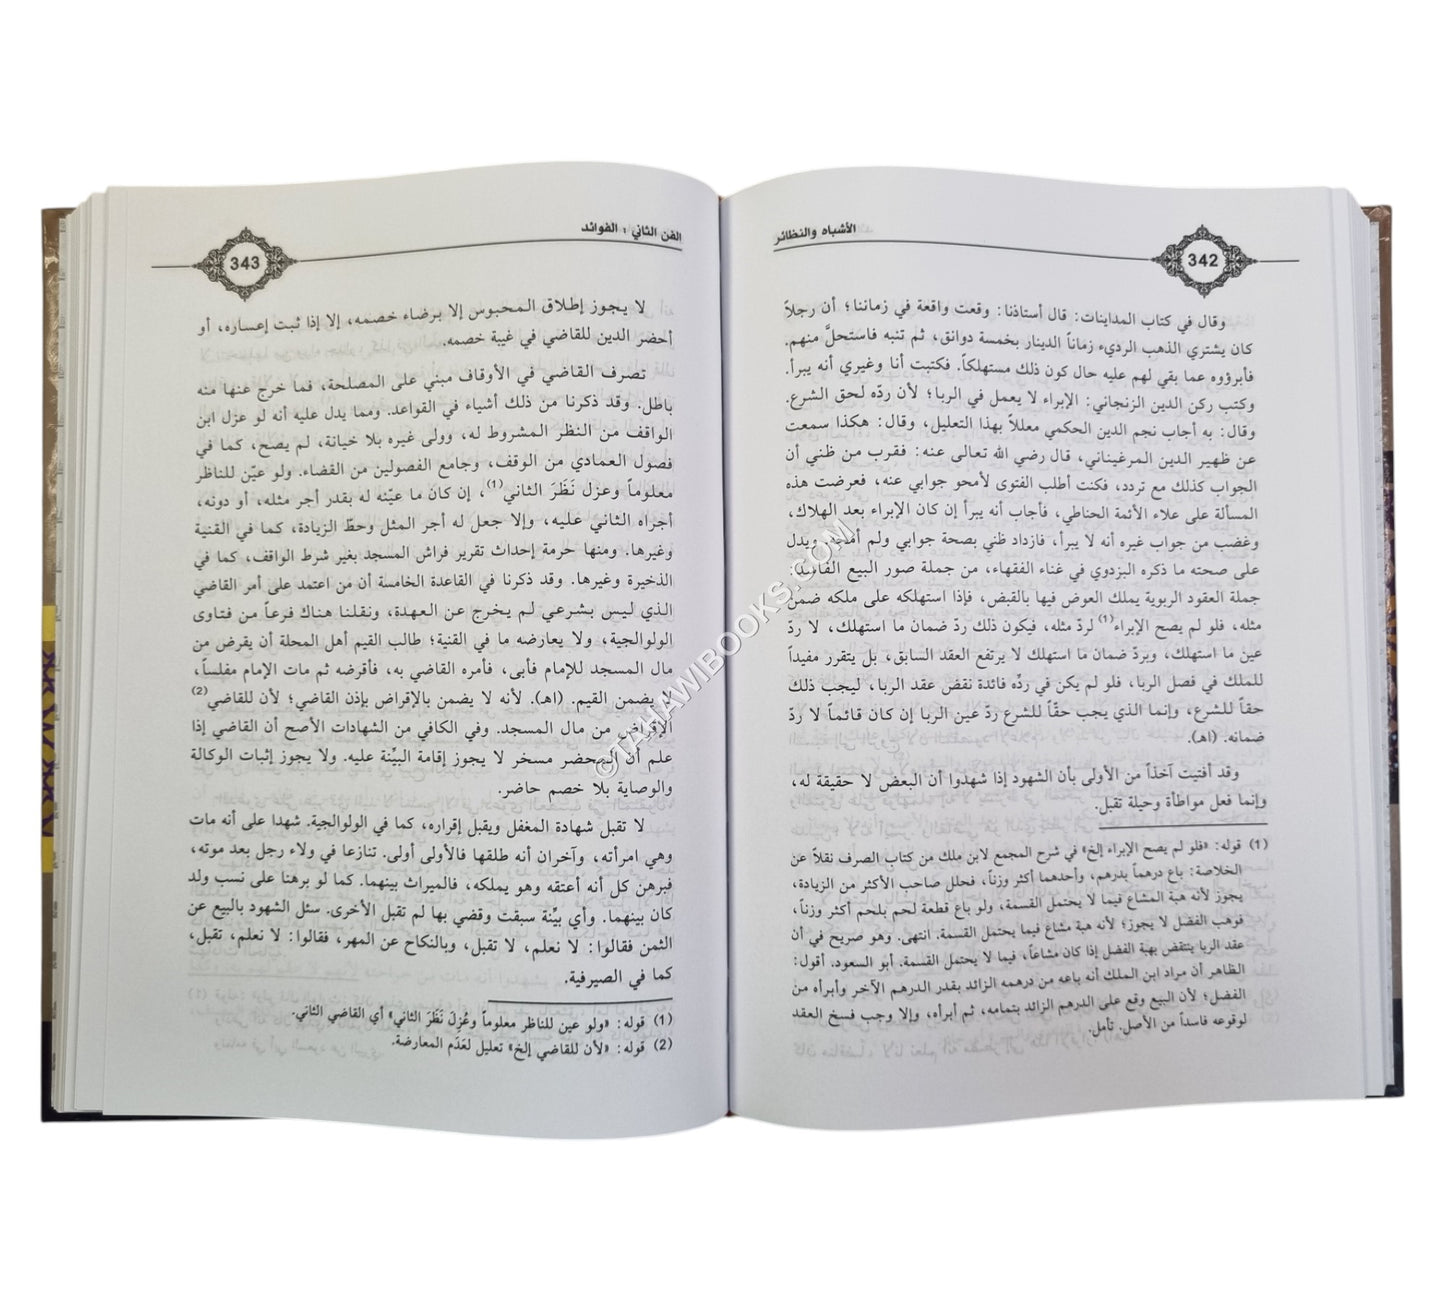 الأشباه والنظائر
342
وقال في كتاب المداينات: قال أستاذنا: وقعت واقعة في زماننا؛ أن رجلاً
كان يشتري الذهب الرديء زماناً الدينار بخمسة دوانق، ثم تنبه فاستحلَّ منهم.
فأبرؤوه عما بقي لهم عليه حال كون ذلك مستهلكاً. فكتبت أنا وغيري أنه يبرأ.
وكتب ركن الدين الزنجاني: الإبراء لا يعمل في الربا؛ لأن ردّه لحق الشرع.
وقال: به أجاب نجم الدين الحكمي معللاً بهذا التعليل، وقال: هكذا سمعت
عن ظهير الدين المرغيناني، قال رضي الله تعالى عنه: فقرب من ظني أن
الجواب كذلك مع تردد، فكنت أطلب الفتوى لأمحو جوابي عنه، فعرضت هذه
المسألة على علاء الأئمة الحناطي، فأجاب أنه يبرأ إن كان الإبراء بعد الهلاك،
وغضب من جواب غيره أنه لا يبرأ، فازداد ظني بصحة جوابي ولم أمحه. ويدل
على صحته ما ذكره البزدوي في غناء الفقهاء، من جملة صور البيع الفاسد:
جملة العقود الربوية يملك العوض فيها بالقبض، فإذا استهلكه على ملكه ضمن
مثله، فلو لم يصح الإبراء(1) لردّ مثله، فيكون ذلك ردّ ضمان ما استهلك، لا ردّ
عين ما استهلك، وبردّ ضمان ما استهلك لا يرتفع العقد السابق، بل يتقرر مفيداً
للملك في فصل الربا، فلو لم يكن في ردِّه فائدة نقض عقد الربا، ليجب ذلك
حقاً للشرع، وإنما الذي يجب حقّاً للشرع ردّ عين الربا إن كان قائماً لا ردّ
ضمانه. (اهـ).
وقد أفتيت آخذاً من الأولى بأن الشهود إذا شهدوا أن البعض لا حقيقة له،
وإنما فعل مواطأة وحيلة تقبل.
(1) قوله: «فلو لم يصح الإبراء إلخ» في شرح المجمع لابن ملك من كتاب الصرف نقلاً عن
الخلاصة: باع درهماً بدرهم، وأحدهما أكثر وزناً، فحلل صاحب الأكثر من الزيادة،
يجوز لأنه هبة المشاع فيما لا يحتمل القسمة، ولو باع قطعة لحم بلحم أكثر وزناً،
فوهب الفضل لا يجوز؛ لأنه هبة مشاع فيما يحتمل القسمة. انتهى. وهو صريح في أن
عقد الربا ينتقض بهبة الفضل إذا كان مشاعاً، فيما لا يحتمل القسمة. أبو السعود. أقول:
الظاهر أن مراد ابن الملك أنه باعه من درهمه الزائد بقدر الدرهم الآخر وأبرأه من
الفضل؛ لأن البيع وقع على الدرهم الزائد بتمامه، ثم أبرأه، وإلا وجب فسخ العقد
لوقوعه فاسداً من الأصل. تأمل.
الفن الثاني : الفوائد
343
لا يجوز إطلاق المحبوس إلا برضاء خصمه، إلا إذا ثبت إعساره، أو
أحضر الدين للقاضي في غيبة خصمه.
تصرف القاضي في الأوقاف مبني على المصلحة، فما خرج عنها منه
باطل. وقد ذكرنا من ذلك أشياء في القواعد. ومما يدل عليه أنه لو عزل ابن
الواقف من النظر المشروط له، وولى غيره بلا خيانة، لم يصح، كما في
فصول العمادي من الوقف، وجامع الفصولين من القضاء. ولو عيّن للناظر
معلوماً وعزل نَظَرَ الثاني(1)، إن كان ما عيّنه له بقدر أجر مثله، أو دونه،
أجراه الثاني عليه، وإلا جعل له أجر المثل وحطّ الزيادة، كما في القنية
وغيرها. ومنها حرمة إحداث تقرير فراش المسجد بغير شرط الواقف، كما في
الذخيرة وغيرها. وقد ذكرنا في القاعدة الخامسة أن من اعتمد على أمر القاضي
الذي ليس بشرعي لم يخرج عن العهدة، ونقلنا هناك فرعاً من فتاوى
الولوالجية، ولا يعارضه ما في القنية؛ طالب القيم أهل المحلة أن يقرض من
مال المسجد للإمام فأبى، فأمره القاضي به، فأقرضه ثم مات الإمام مفلساً،
يضمن القيم. (اهـ). لأنه لا يضمن بالإقراض بإذن القاضي؛ لأن للقاضي(2)
الإقراض من مال المسجد. وفي الكافي من الشهادات الأصح أن القاضي إذا
علم أن المحضر مسخر لا يجوز إقامة البيّنة عليه. ولا يجوز إثبات الوكالة
والوصاية بلا خصم حاضر.
لا تقبل شهادة المغفل ويقبل إقراره، كما في الولوالجية. شهدا على أنه مات
وهي امرأته، وآخران أنه طلقها فالأولى أولى. تنازعا في ولاء رجل بعد موته،
فبرهن كل أنه أعتقه وهو يملكه، فالميراث بينهما. كما لو برهنا على نسب ولد
كان بينهما. وأي بيِّنة سبقت وقضي بها لم تقبل الأخرى. سئل الشهود بالبيع عن
الثمن فقالوا: لا نعلم، لا تقبل، وبالنكاح عن المهر، فقالوا: لا نعلم، تقبل،
كما في الصيرفية.
(1) قوله: «ولو عين للناظر معلوماً وعُزِلَ نَظَرَ الثاني» أي القاضي الثاني.
(2) قوله: «لأن للقاضي إلخ» تعليل لعَدَم المعارضة.
© TAHAWIBOOKS.COM